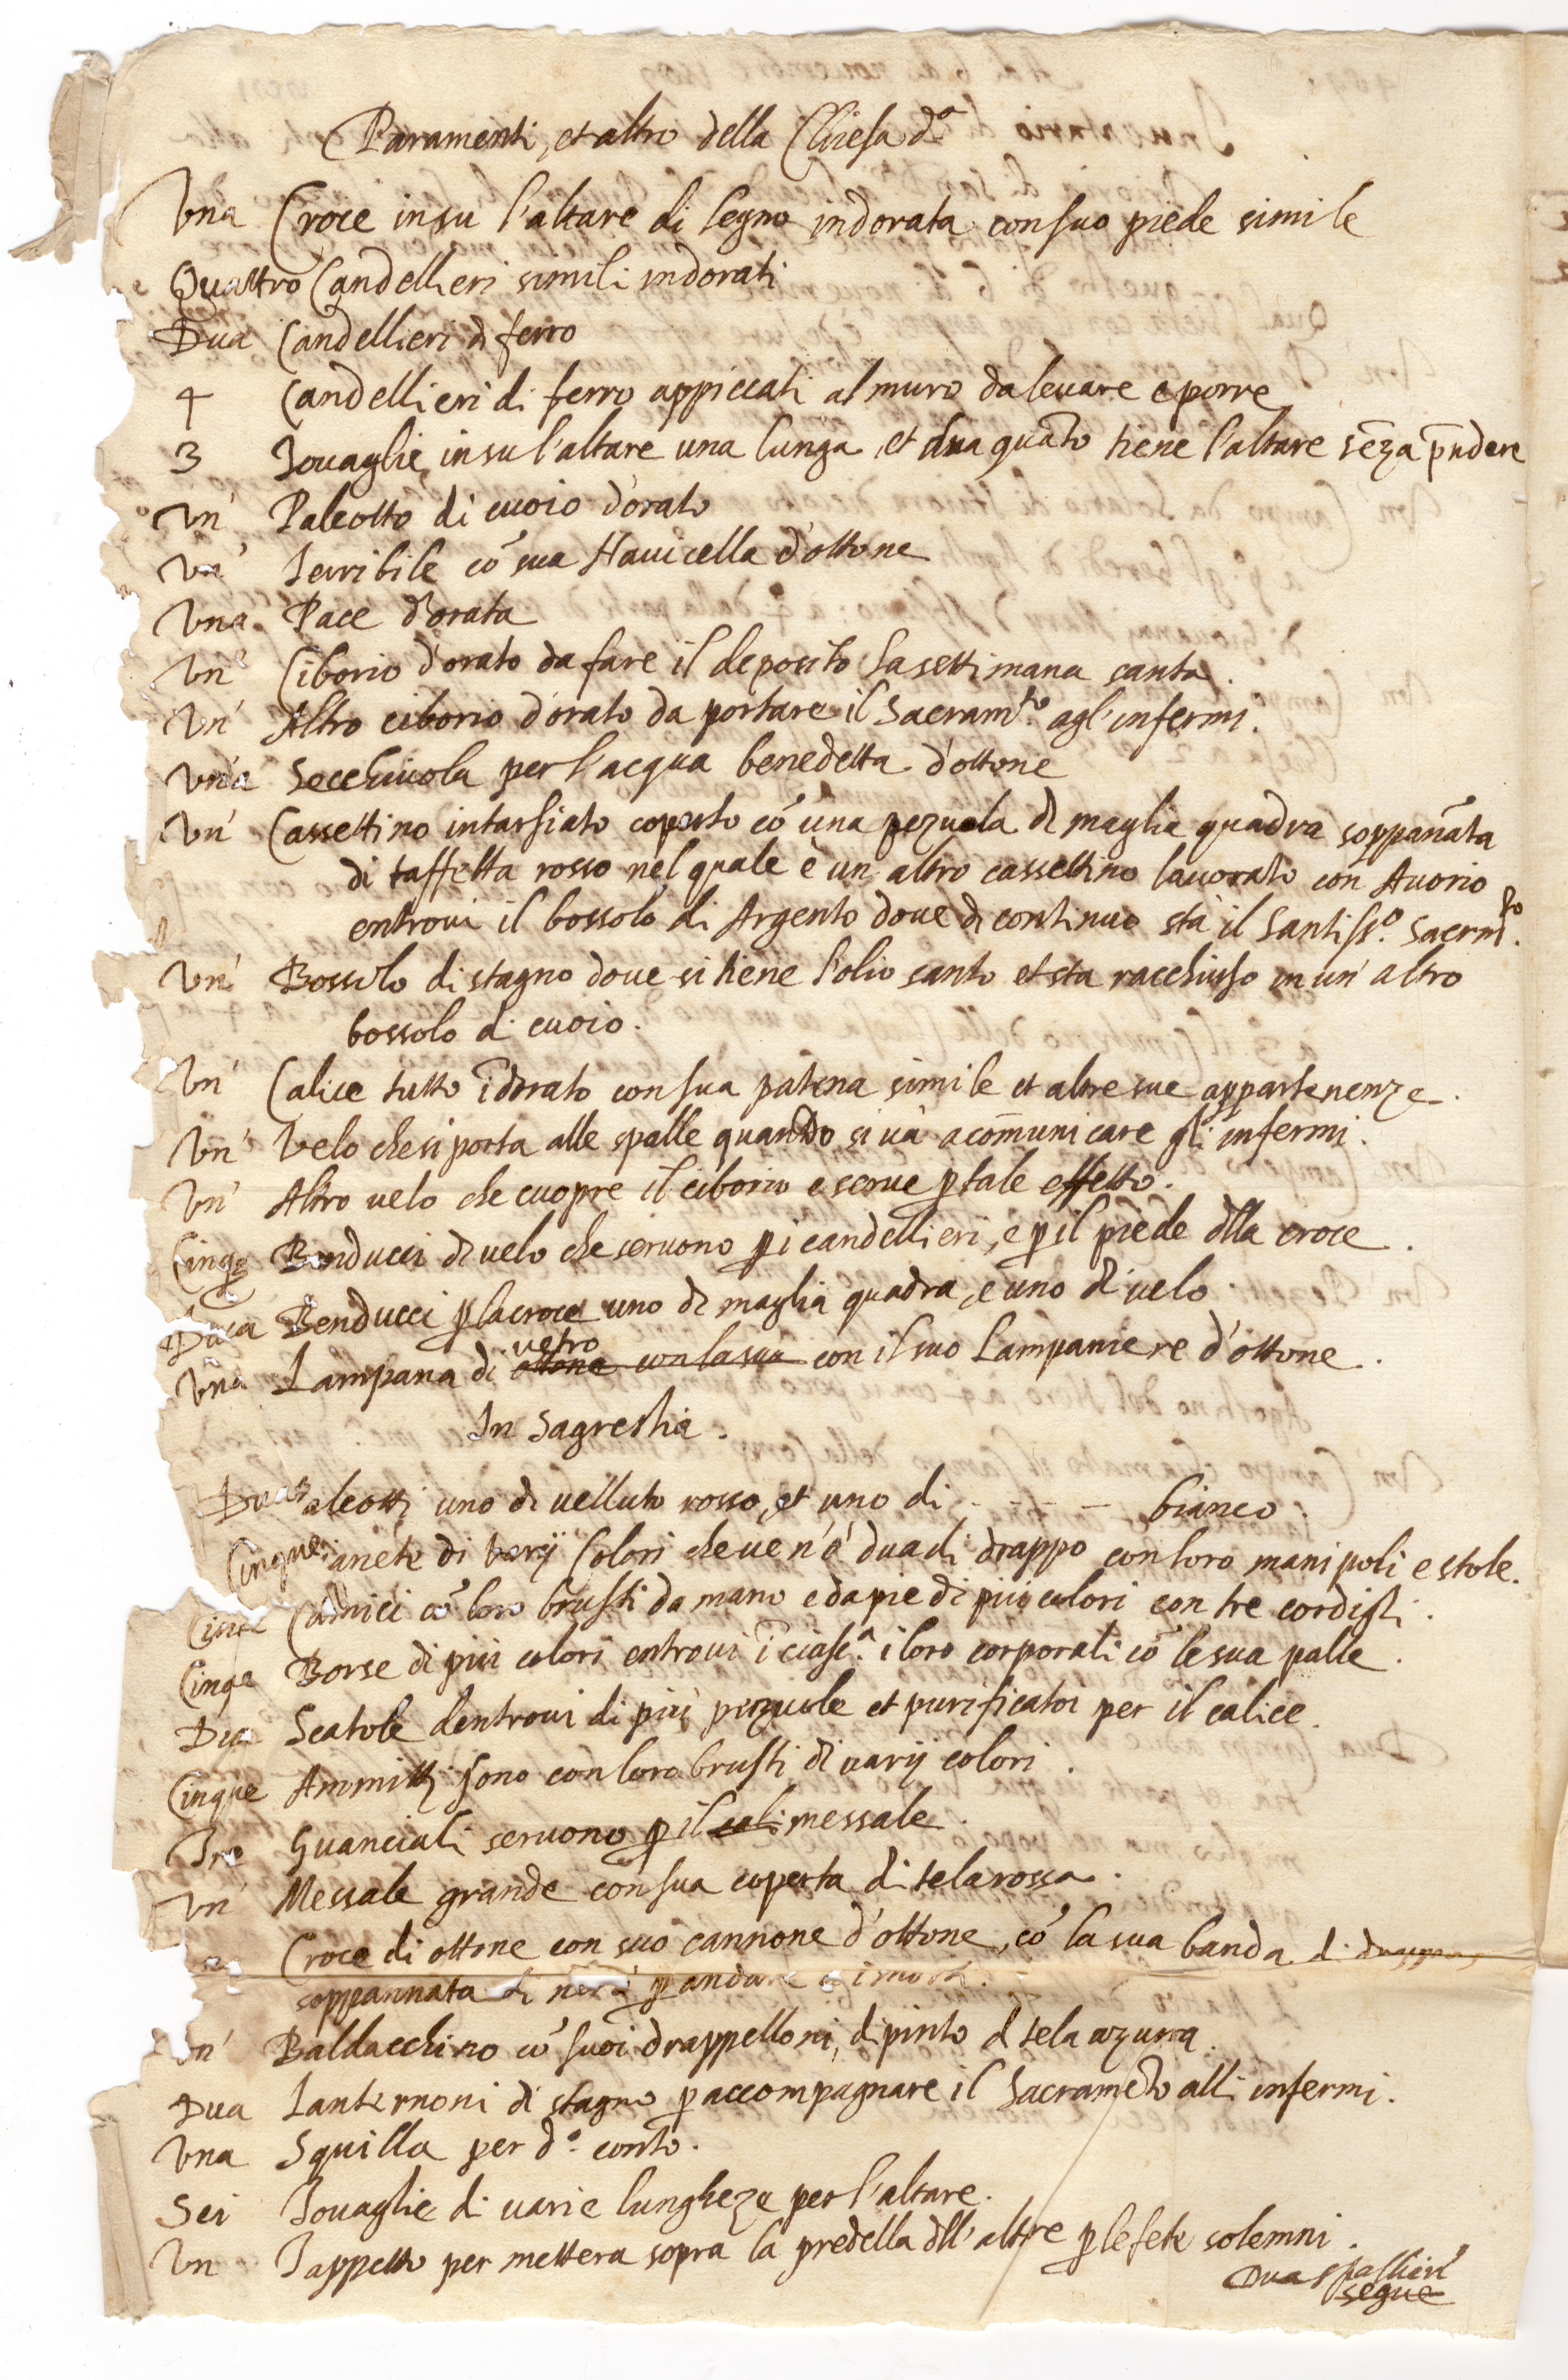 Paramenti, et altro della Chiesa d.ª
Una Croce insu l'altare di legno indorata con suo piede simile
Quattro Candellieri simili indorati
Dua Candellieri di ferro
4 Candellieri di ferro appiccati al muro da levare e porre
3 Tovaglie insu l'altare una lunga et dua quãto tiene l'altare sẽza p̃ndere
Un' Paleotto di cuoio d'orato
Un' Terribile cõ sua Navicella d'ottone
Una Pace d'orata
Un' Ciborio d'orato da fare il deposito la settimana santa.
Un' Altro ciborio d'orato da portare il Sacram.to agl'infermi.
Una Secchiuola per l'acqua benedetta d'ottone
Un' Cassettino intarsiato coperto cõ una pezuola di maglia quadra soppañata
di taffetta rosso nel quale è un altro cassettino lavorato con Avorio
entrovi il bossolo di Argento dove di continuo sta il Santiss.º Sacrm.to
Un' Bossolo di stagno dove si tiene l'olio santo et sta racchiuso in un' altro
bossolo di cuoio.
Un' Calice tutto ĩdorato con sua patena simile et altre sue appartenenze.
Un' Velo che si porta alle spalle quando si và a cõmunicare gli infermi.
Un' Altro velo che cuopre il ciborio e serve ꝑ tale effetto.
Cinqe Benducci di velo che servono ꝑ i candellieri, e ꝑ il piede dlla croce.
Dua Benducci ꝑ la croce uno di maglia quadra, e uno di velo.
vetro
Una Lampana di ottone con la sua con il suo Lampaniere d'ottone.
In Sagrestia.
Dua Paleotti uno di velluto rosso, et uno di - - - - bianco.
Cinque Pianete di varij Colori che ve n'è dua di drappo con loro manipoli e stole.
Cinqe Camici cõ loro brusti da mano e da pie di più colori con tre cordigli.
Cinqe Borse di più colori entrovi ĩ ciasc.ª i loro corporali cõ le sua palle.
Dua Scatole dentrovi di più pezuole et purificatoi per il calice.
Cinque Ammitti sono con loro brusti di varij colori.
Tre Guanciali servono ꝑ il cali messale.
Un' Messale grande con sua coperta di tela rossa.
Croce di ottone con suo cannone d'ottone, cõ la sua banda di drappo
soppannata di nero ꝑ andare a i morti.
Un' Baldacchino cõ suoi drappelloni, dipinto di tela azurra.
Dua Lanternoni di stagno ꝑ accompagnare il Sacrameto alli infermi.
Una Squilla per d.º conto.
Sei Tovaglie di varie lungheze per l'altare.
Un Tappetto per mettera sopra la predella dll'altre ꝑ le feste solemni.
Dua spallieri
segue